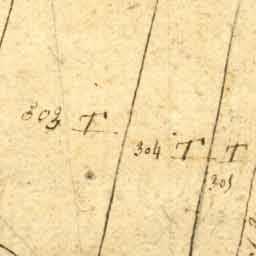 303 T
304 T T
305